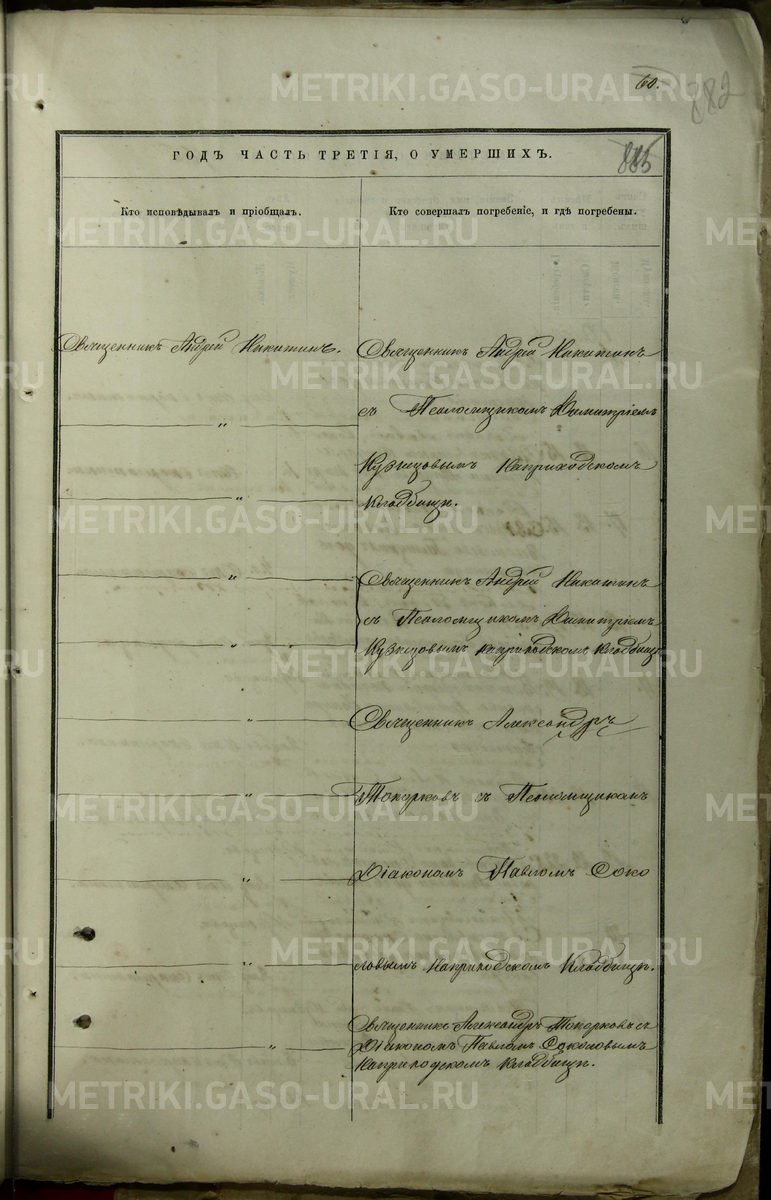 60.
882
885
ГОДЪ ЧАСТЬ ТРЕТІЯ, О УМЕРШИХЪ.
Кто исповѣдывалъ и пріобщалъ.
Кто совершалъ погребеніе, и гдѣ погребены.
Священникъ Андрей Никитинъ.
Священникъ Андрей Никитинъ
съ Псаломщикомъ Димитріемъ
Кузнецовымъ наприходскомъ
Кладбищѣ.
Священникъ Андрей Никитинъ
съ Псаломщикомъ Димитріемъ
Кузнецовымъ наприходскомъ Кладбищѣ
Священникъ Александръ
Топорковъ съ Псаломщикомъ
Діакономъ Павломъ Соко
ловымъ наприходскомъ Кладбищѣ.
Священникъ Александръ Топорковъ съ
Діакономъ Павломъ Соколовымъ
наприходскомъ Кладбищѣ.
METRIKI.GASO-URAL.RU